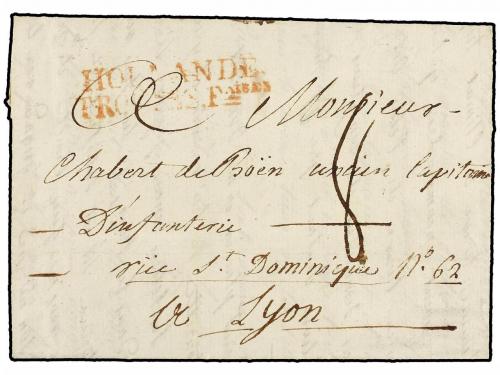 HOLLANDE
PROV. ES. Fraises
A Monsieur
Chabert de Boën ancien Capitaine
D'infanterie
rüe St. Dominique No. 62
a Lyon
8